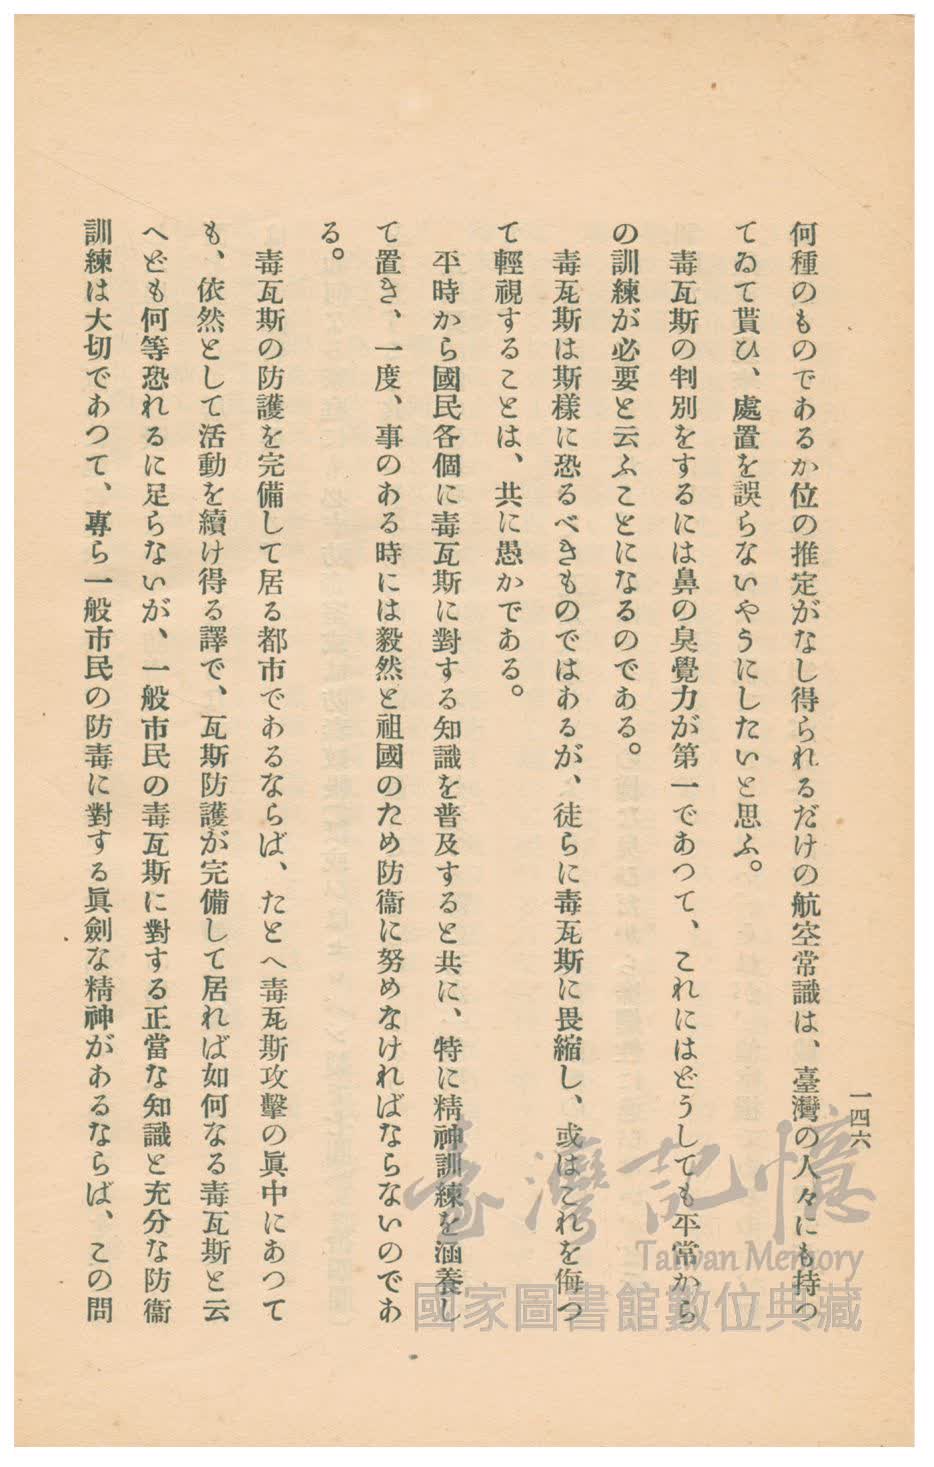 何種のものであるか位の推定がなし得られるだけの航空常識は、臺灣の人々にも持つ
てゐて貰ひ、處置を誤らないやうにしたいと思ふ。
毒瓦斯の判別をするには鼻の臭覺力が第一であつて、これにはどうしても平常から
の訓練が必要と云ふことになるのである。
毒瓦斯は斯樣に恐るべきものではあるが、徒らに毒瓦斯に畏縮し、或はこれを侮つ
て輕視することは、共に愚かである。
平時から國民各個に毒瓦斯に對する知識を普及すると共に、特に精神訓練を涵養し
て置き、一度、事のある時には毅然と祖國のため防衞に努めなければならないのであ
る。
毒瓦斯の防護を完備して居る都市であるならば、たとへ毒瓦斯攻擊の眞中にあつて
も、依然として活動を續け得る譯で、瓦斯防護が完備して居れば如何なる毒瓦斯と云
へども何等恐れるに足らないが、一般市民の毒瓦斯に對する正當な知識と充分な防衞
訓練は大切であつて、專ら一般市民の防毒に對する眞劍な精神があるならば、この問
一四六
臺灣記憶
Taiwan Memory
國家圖書館數位典藏